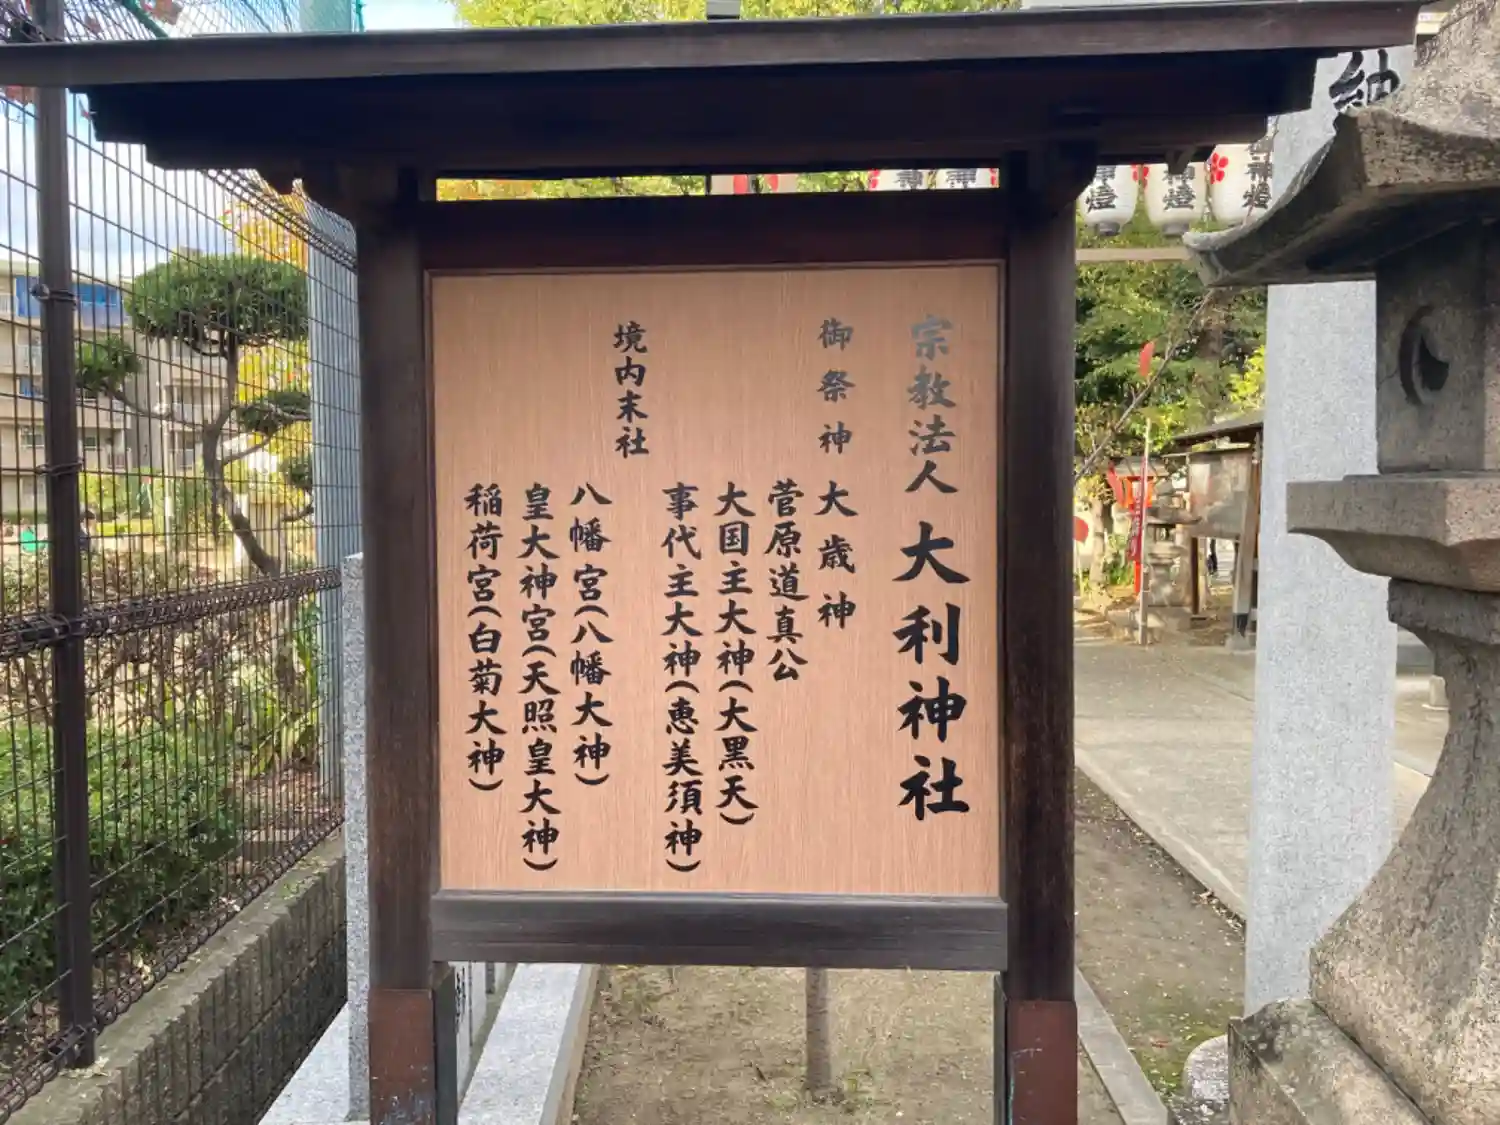 宗教法人 大利神社
御祭神 大歳神
菅原道真公
大国主大神(大黒天)
事代主大神(恵美須神)
境内末社
八幡宮(八幡大神)
皇大神宮(天照皇大神)
稲荷宮(白菊大神)
神燈
燈
燈
納